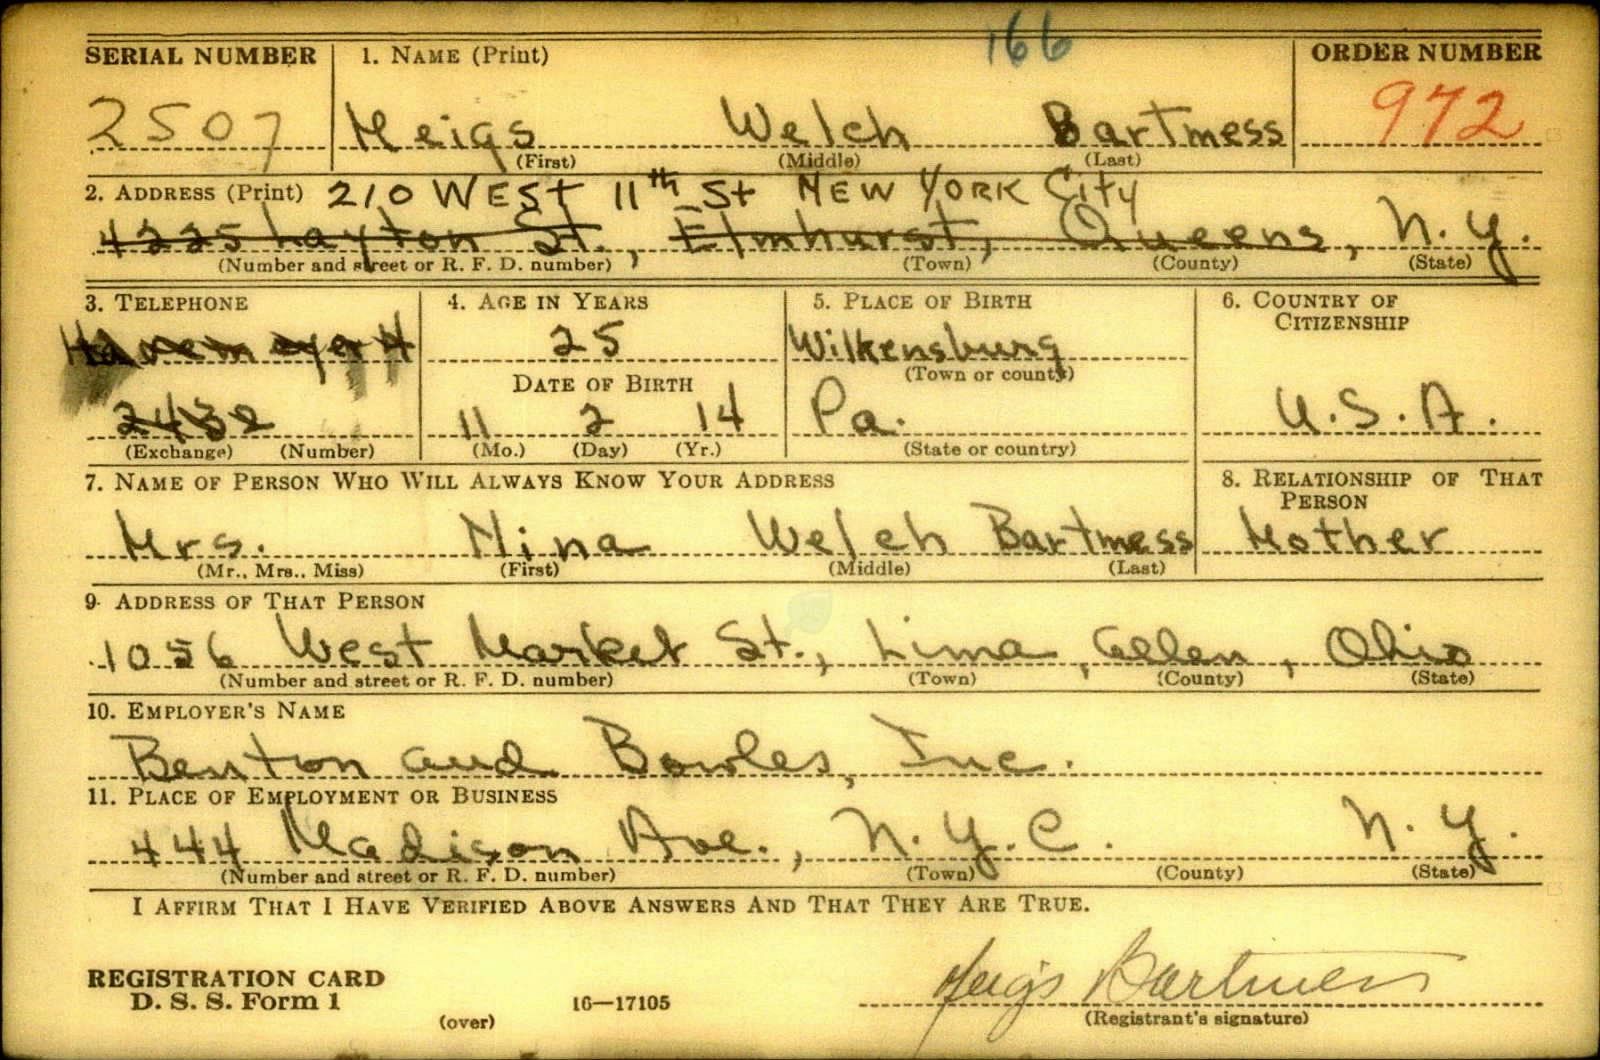 166
SERIAL NUMBER 1. NAME (Print) ORDER NUMBER
2507 Meigs Welch Bartmess 972
(First) (Middle) (Last)
2. ADDRESS (Print) 210 WEST 11th St NEW YORK City
4225 Layton St., Elmhurst, Queens, N.Y.
(Number and street or R. F. D. number) (Town) (County) (State)
3. TELEPHONE 4. AGE IN YEARS 5. PLACE OF BIRTH 6. COUNTRY OF CITIZENSHIP
Havemeyer 4 25 Wilkensburg
(Town or county)
DATE OF BIRTH
2432 11 2 14 Pa. U.S.A.
(Exchange) (Number) (Mo.) (Day) (Yr.) (State or country)
7. NAME OF PERSON WHO WILL ALWAYS KNOW YOUR ADDRESS 8. RELATIONSHIP OF THAT PERSON
Mrs. Nina Welch Bartmess Mother
(Mr., Mrs., Miss) (First) (Middle) (Last)
9. ADDRESS OF THAT PERSON
1056 West Market St., Lima, Allen, Ohio
(Number and street or R. F. D. number) (Town) (County) (State)
10. EMPLOYER'S NAME
Benton and Bowles, Inc.
11. PLACE OF EMPLOYMENT OR BUSINESS
444 Madison Ave., N.Y.C. N.Y.
(Number and street or R. F. D. number) (Town) (County) (State)
I AFFIRM THAT I HAVE VERIFIED ABOVE ANSWERS AND THAT THEY ARE TRUE.
REGISTRATION CARD
D. S. S. Form 1 16—17105 Meigs Bartmess
(over) (Registrant's signature)